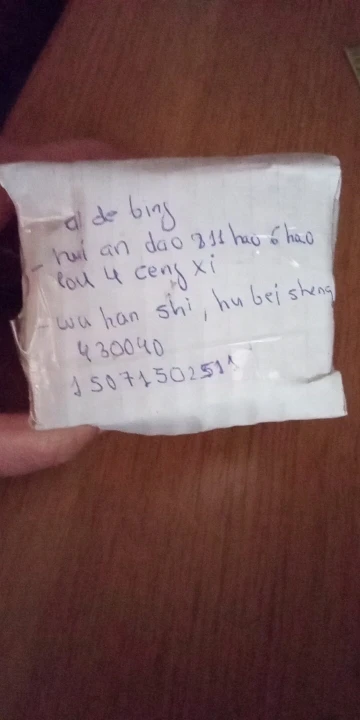 a de bing
- hui an dao 811 hao 6 hao
lou 4 ceng xi
- wu han shi, hu bei sheng
430040
15071502511